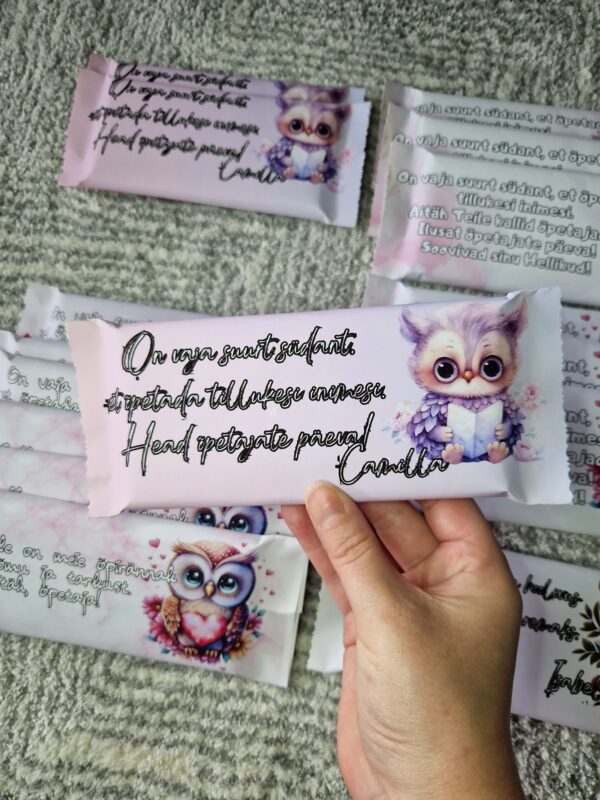 On vaja suurt südant.
On vaja suurt südant.
et õpetada tillukesi inimesi.
Head õpetajate päeva!
Camilla
vaja suurt südant, et õpeta
On vaja suurt südant, et õpeta
On vaja suurt südant, et õpe
tillukesi inimesi.
Aitäh Teile kallid õpetaja
Ilusat õpetajate päeva!
Soovivad sinu Hellikud!
On vaja suurt südant.
et õpetada tillukesi inimesi.
Head õpetajate päeva!
Camilla
On vaja
on meie õpirännak
ja tarkust.
õpetaja!
Isabe